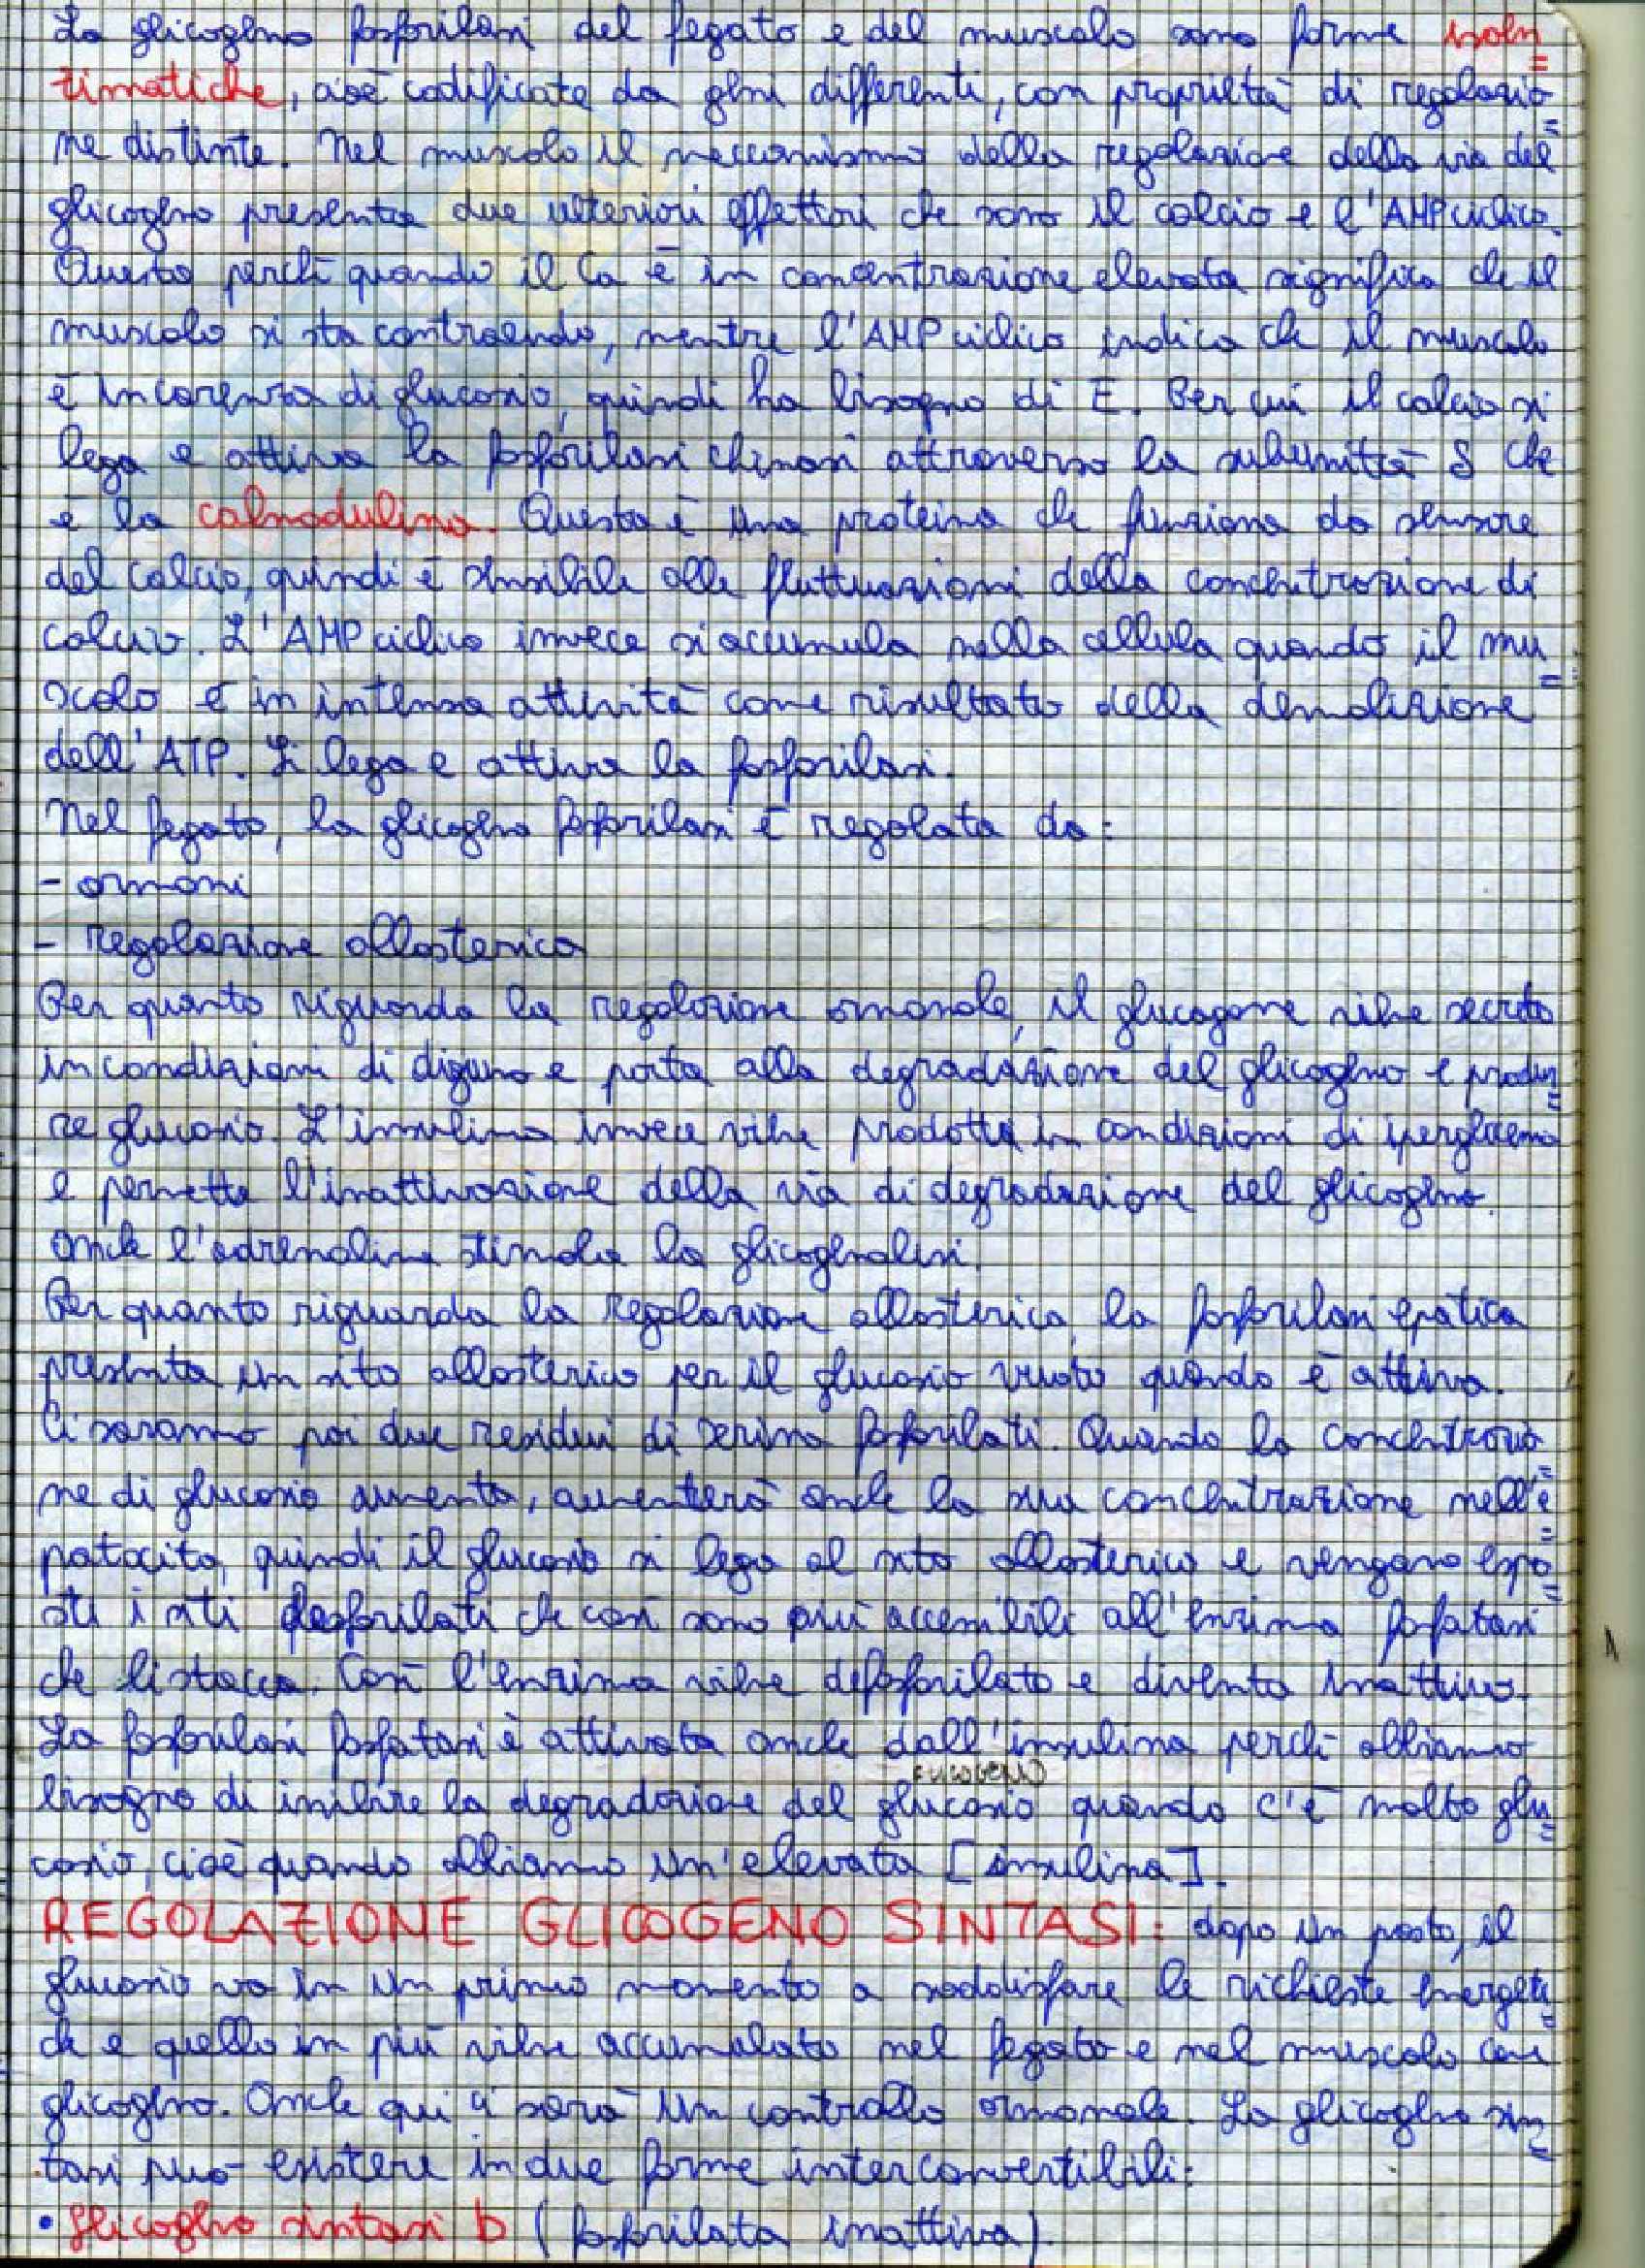 La glicogeno fosforilasi del fegato e del muscolo sono forme isoen=
zimatiche, cioè codificate da geni differenti, con proprietà di regolazio=
ne distinte. Nel muscolo il meccanismo della regolazione della via del
glicogeno presenta due ulteriori effettori che sono il calcio e l'AMP ciclico.
Questo perché quando il Ca è in concentrazione elevata significa che il
muscolo si sta contraendo, mentre l'AMP ciclico indica che il muscolo
è in carenza di glucosio, quindi ha bisogno di E. Per cui il calcio si
lega e attiva la fosforilasi chinasi attraverso la subunità δ che
è la calmodulina. Questa è una proteina che funziona da sensore
del calcio, quindi è sensibile alle fluttuazioni della concentrazione di
calcio. L'AMP ciclico invece si accumula nella cellula quando il mu=
scolo è in intensa attività come risultato della demolizione
dell'ATP. Si lega e attiva la fosforilasi.
Nel fegato, la glicogeno fosforilasi è regolata da:
- ormoni
- regolazione allosterica
Per quanto riguarda la regolazione ormonale, il glucagone viene secreto
in condizioni di digiuno e porta alla degradazione del glicogeno e produr=
re glucosio. L'insulina invece viene prodotta in condizioni di iperglicemia
e permette l'inattivazione della via di degradazione del glicogeno.
Anche l'adrenalina stimola la glicogenolisi.
Per quanto riguarda la regolazione allosterica, la fosforilasi epatica
presenta un sito allosterico per il glucosio vuoto quando è attiva.
Ci saranno poi due residui di serina fosforilati. Quando la concentrazio=
ne di glucosio aumenta, aumenterà anche la sua concentrazione nell'e=
patocito, quindi il glucosio si lega al sito allosterico e vengano espo=
sti i siti fosforilati che così sono più accessibili all'enzima fosfatasi
che li stacca. Così l'enzima viene defosforilato e diventa inattivo.
La fosforilasi fosfatasi è attivata anche dall'insulina perché abbiamo
GLICOGENO
bisogno di inibire la degradazione del glucosio quando c'è molto glu=
cosio, cioè quando abbiamo un'elevata [insulina].
REGOLAZIONE GLICOGENO SINTASI: dopo un pasto, il
glucosio va in un primo momento a soddisfare le richieste energeti=
che e quello in più viene accumulato nel fegato e nel muscolo come
glicogeno. Anche qui ci sarà un controllo ormonale. La glicogeno sin=
tasi può esistere in due forme interconvertibili:
• Glicogeno sintasi b (fosforilata inattiva).